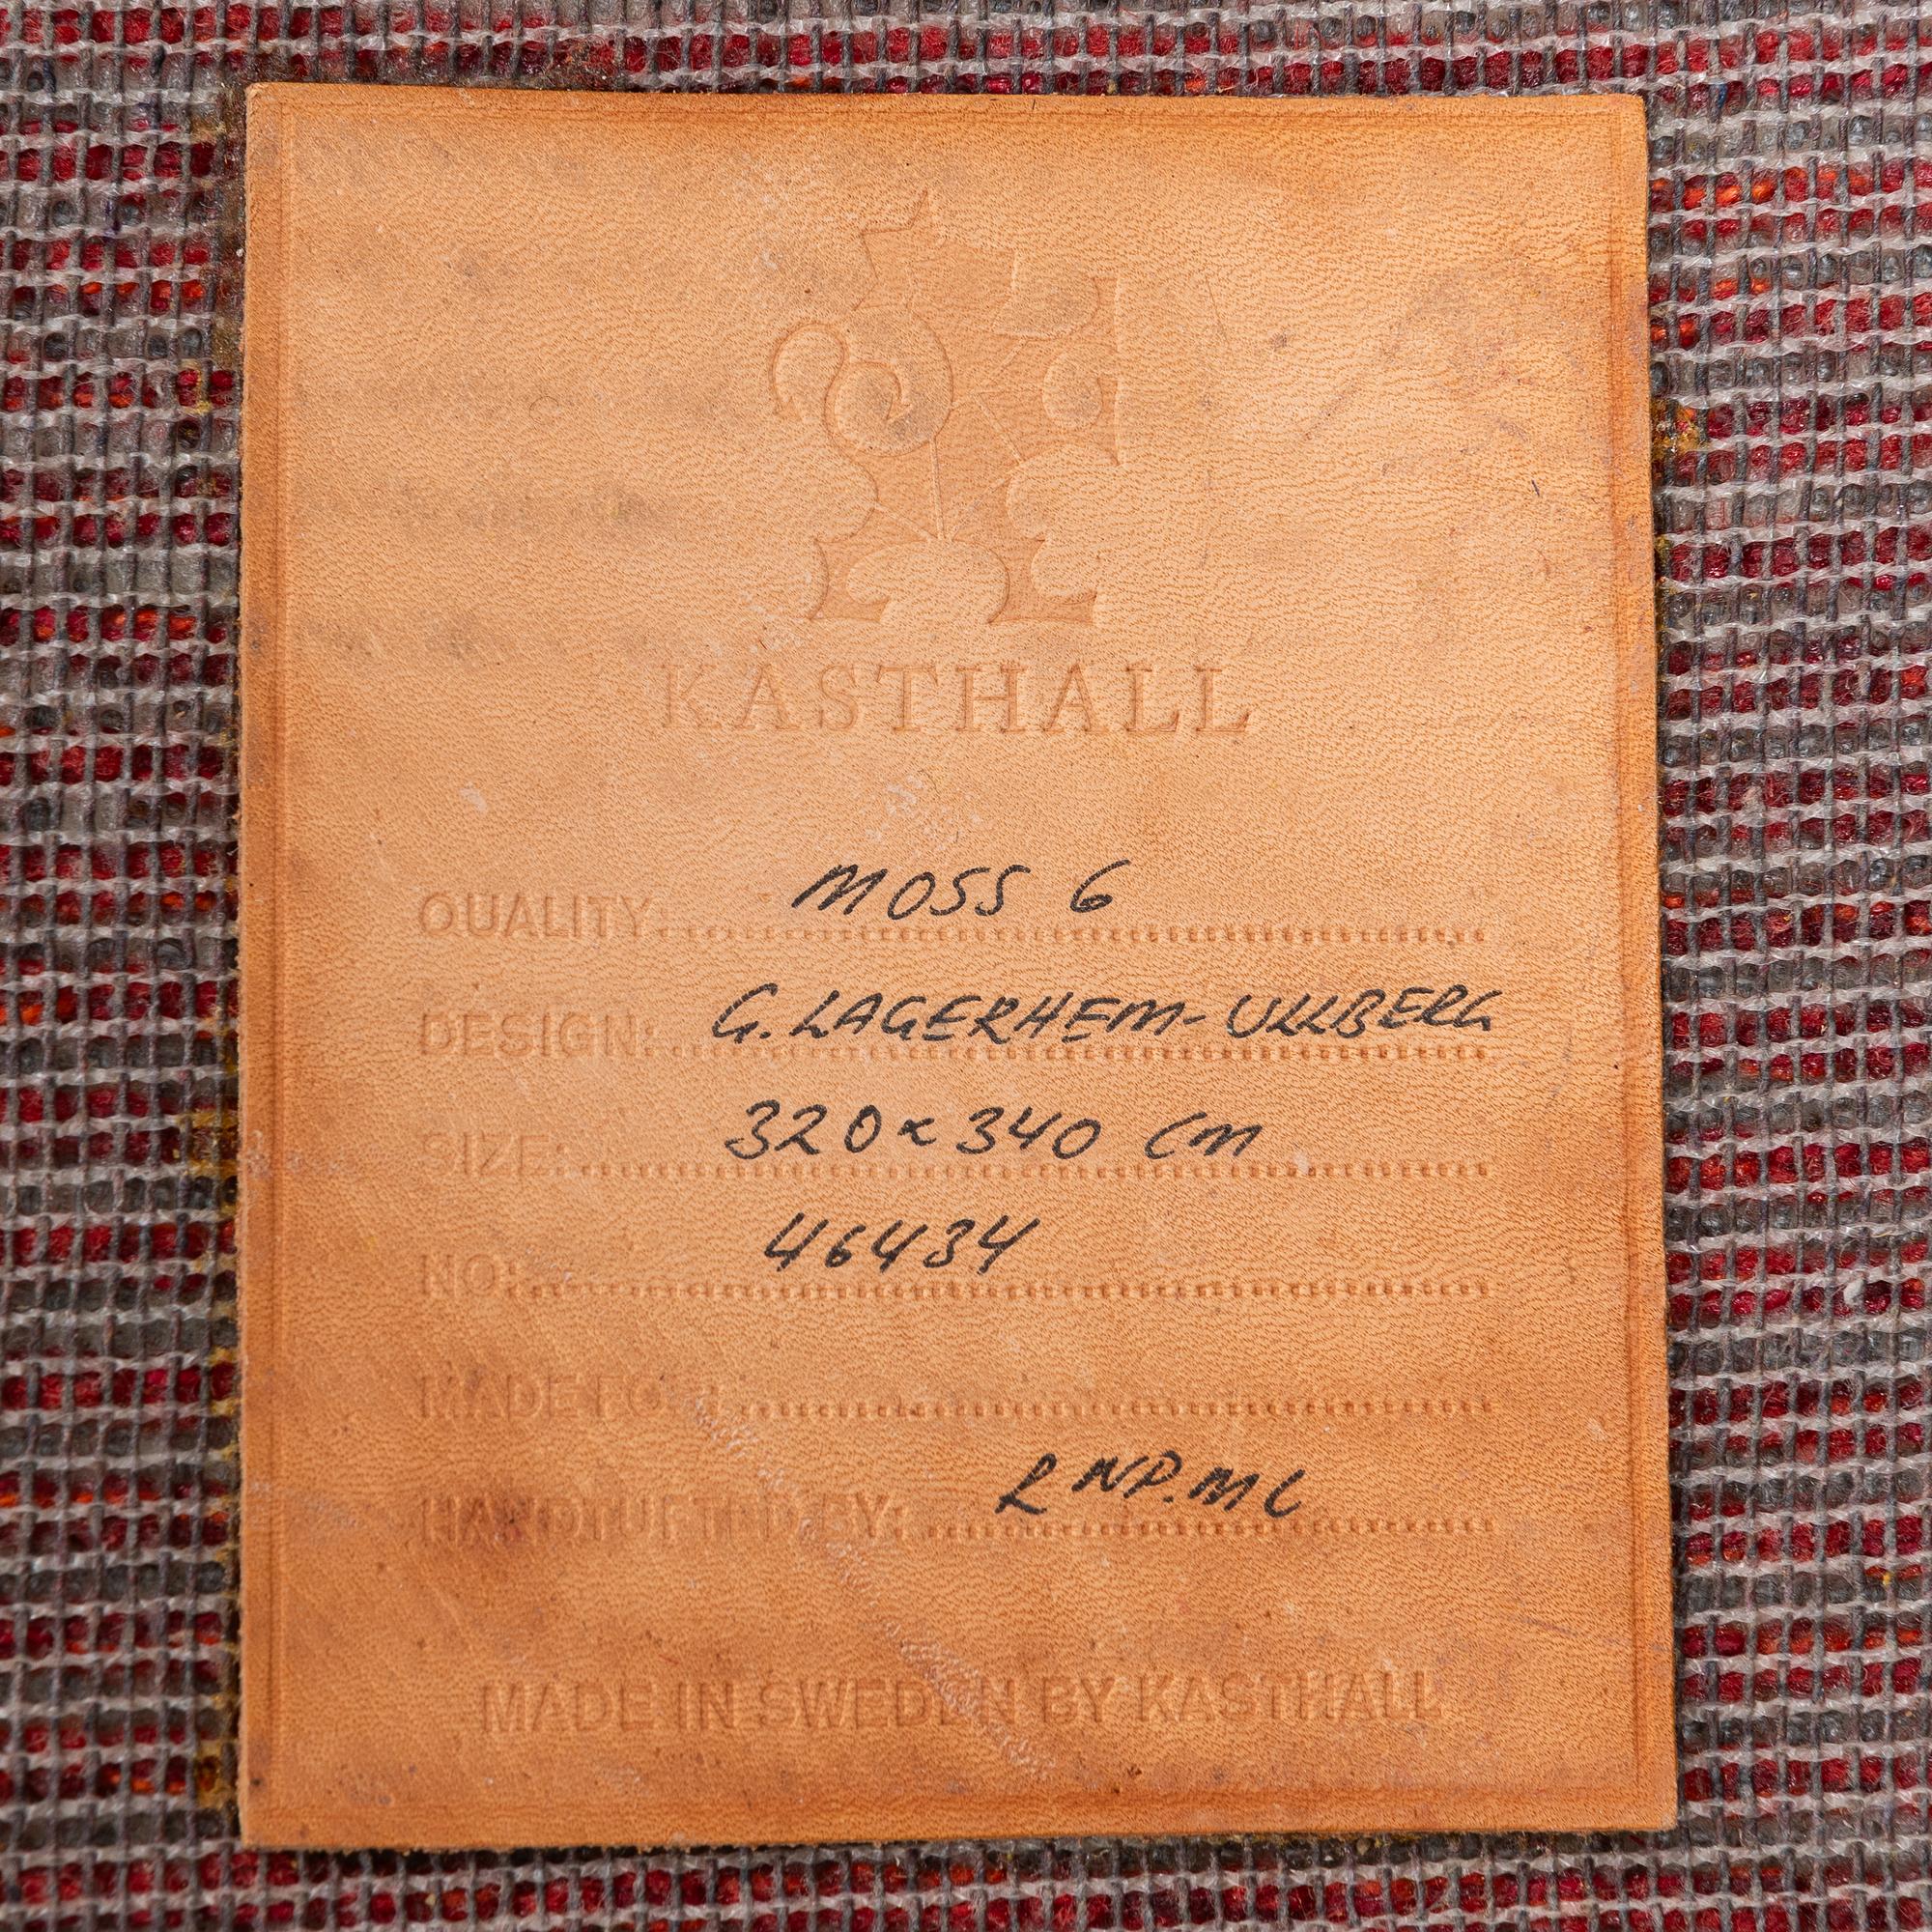 KASTHALL
QUALITY: MOSS 6
DESIGN: G. LAGERHEM-ULLBERG
SIZE: 320x340 cm
NO: 46434
MADE FOR:
HANDTUFTED BY: R NP.ML
MADE IN SWEDEN BY KASTHALL